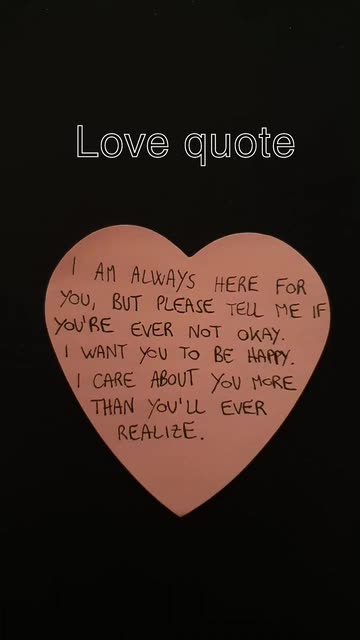 Love quote
I AM ALWAYS HERE FOR
YOU, BUT PLEASE TELL ME IF
YOU'RE EVER NOT OKAY.
I WANT YOU TO BE HAPPY.
I CARE ABOUT YOU MORE
THAN YOU'LL EVER
REALIZE.